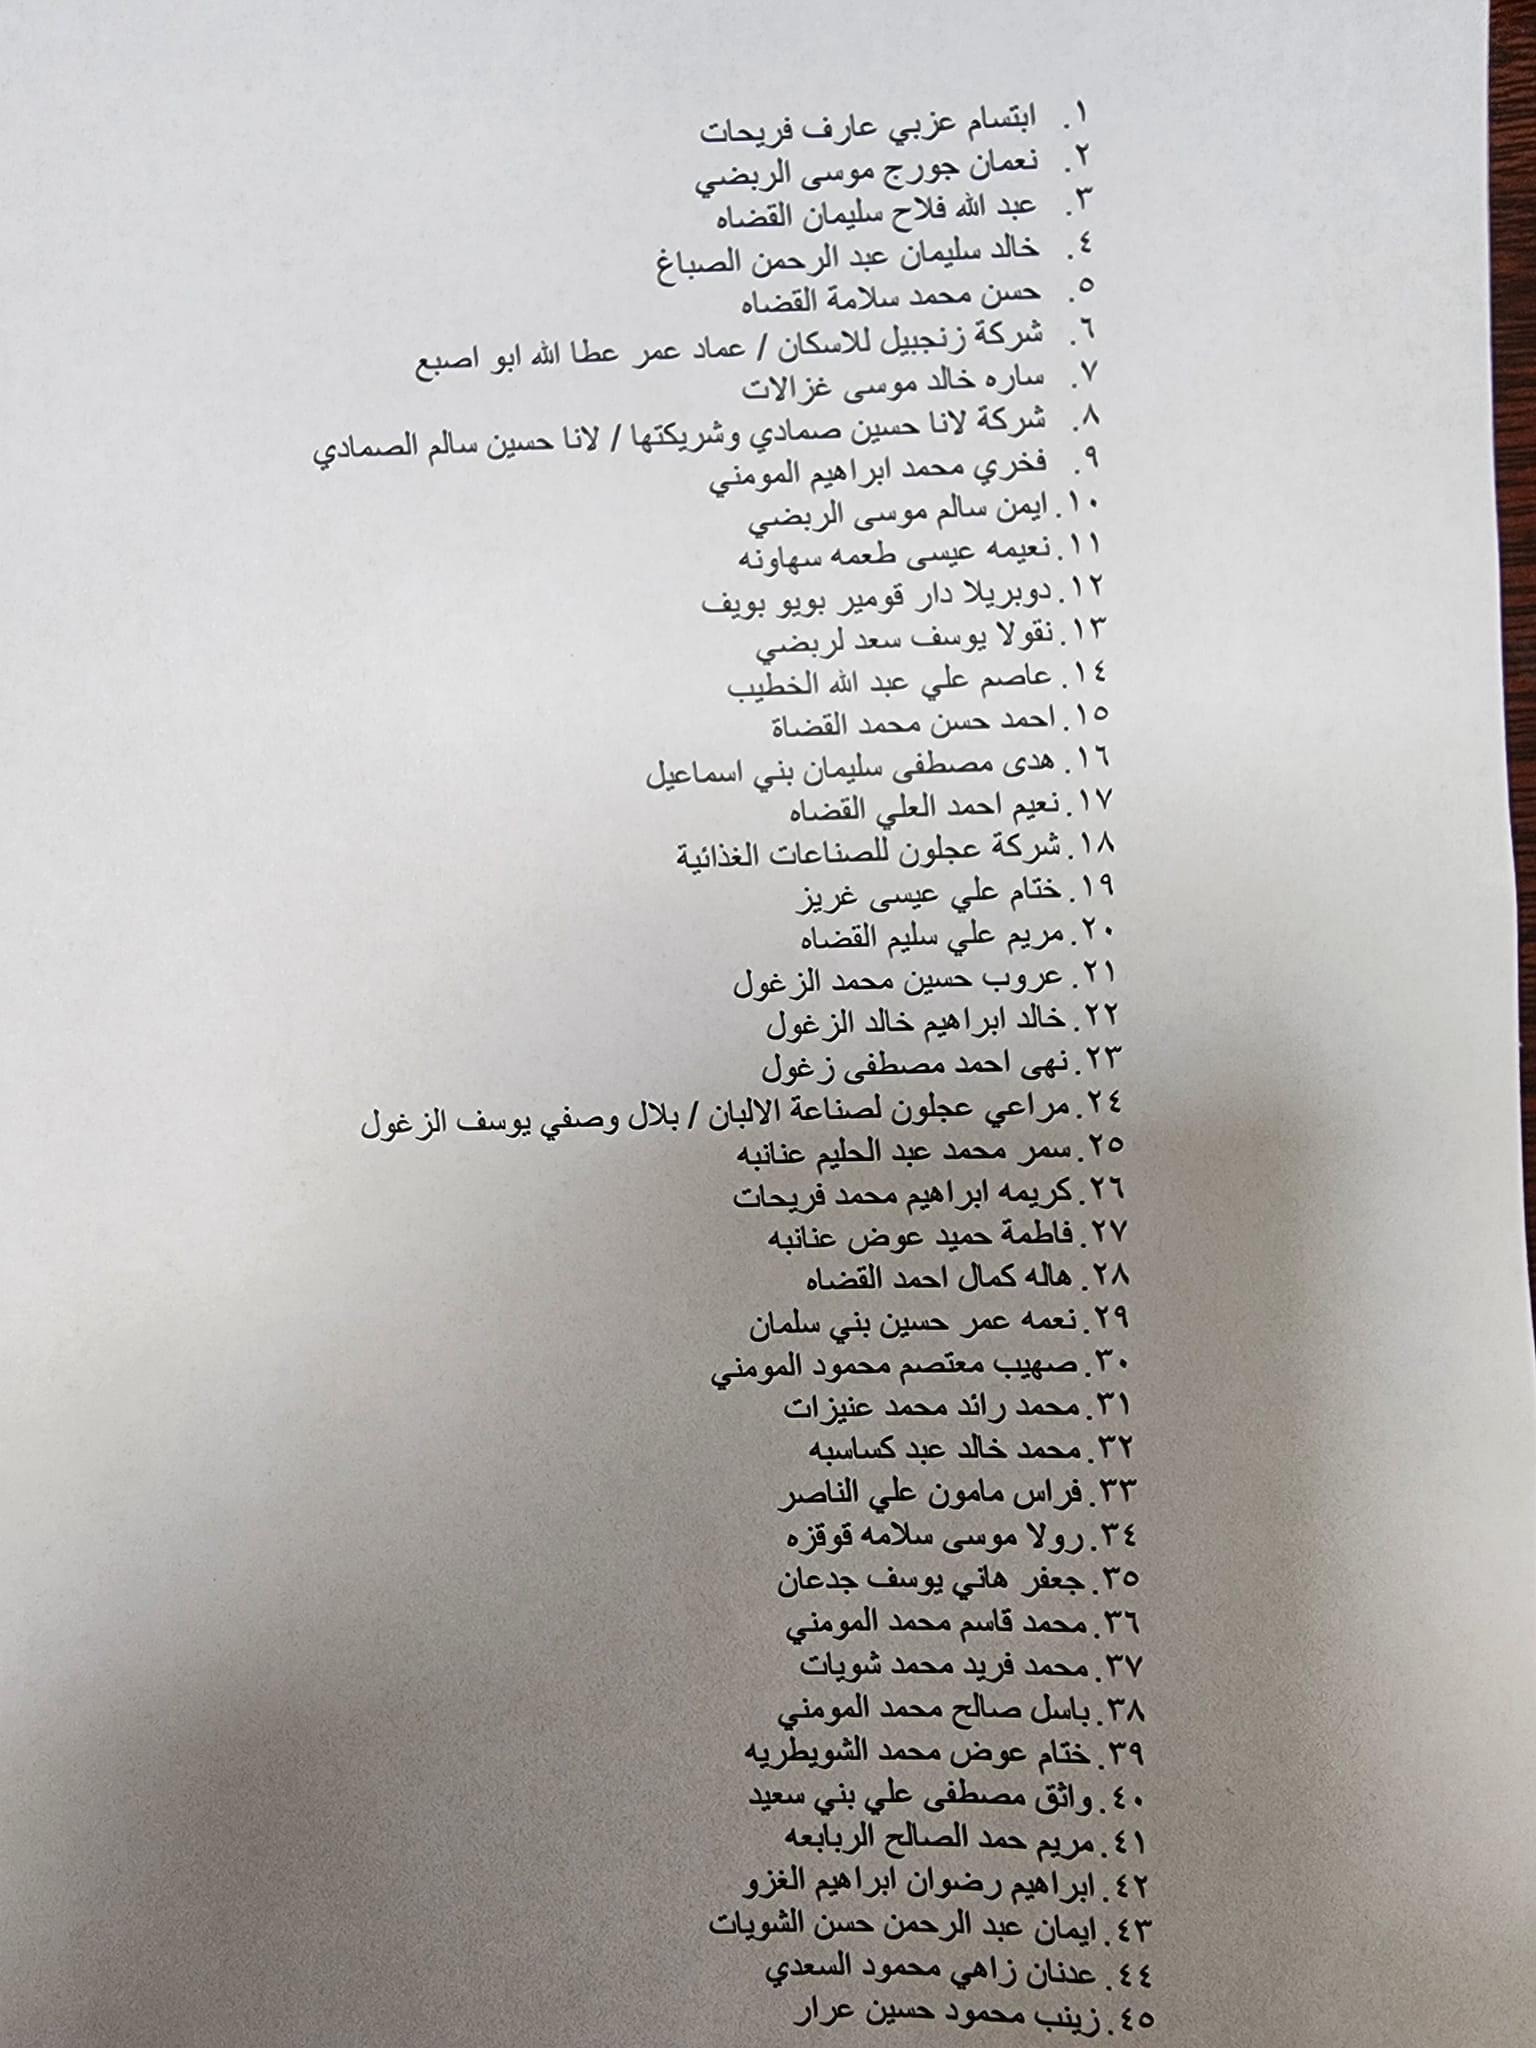 ١. ابتسام عزبي عارف فريحات
٢. نعمان جورج موسى الربضي
٣. عبد الله فلاح سليمان القضاه
٤. خالد سليمان عبد الرحمن الصباغ
٥. حسن محمد سلامة القضاه
٦. شركة زنجبيل للاسكان / عماد عمر عطا الله ابو اصبع
٧. ساره خالد موسى غزالات
٨. شركة لانا حسين صمادي وشريكتها / لانا حسين سالم الصمادي
٩. فخري محمد ابراهيم المومني
١٠. ايمن سالم موسى الربضي
١١. نعيمه عيسى طعمه سهاونه
١٢. دوبريلا دار قومير بويو بويف
١٣. نقولا يوسف سعد لربضي
١٤. عاصم علي عبد الله الخطيب
١٥. احمد حسن محمد القضاة
١٦. هدى مصطفى سليمان بني اسماعيل
١٧. نعيم احمد العلي القضاه
١٨. شركة عجلون للصناعات الغذائية
١٩. ختام علي عيسى غريز
٢٠. مريم علي سليم القضاه
٢١. عروب حسين محمد الزغول
٢٢. خالد ابراهيم خالد الزغول
٢٣. نهى احمد مصطفى زغول
٢٤. مراعي عجلون لصناعة الالبان / بلال وصفي يوسف الزغول
٢٥. سمر محمد عبد الحليم عنانبه
٢٦. كريمه ابراهيم محمد فريحات
٢٧. فاطمة حميد عوض عنانبه
٢٨. هاله كمال احمد القضاه
٢٩. نعمه عمر حسين بني سلمان
٣٠. صهيب معتصم محمود المومني
٣١. محمد رائد محمد عنيزات
٣٢. محمد خالد عبد كساسبه
٣٣. فراس مامون علي الناصر
٣٤. رولا موسى سلامه قوقزه
٣٥. جعفر هاني يوسف جدعان
٣٦. محمد قاسم محمد المومني
٣٧. محمد فريد محمد شويات
٣٨. باسل صالح محمد المومني
٣٩. ختام عوض محمد الشويطريه
٤٠. واثق مصطفى علي بني سعيد
٤١. مريم حمد الصالح الربابعه
٤٢. ابراهيم رضوان ابراهيم الغزو
٤٣. ايمان عبد الرحمن حسن الشويات
٤٤. عدنان زاهي محمود السعدي
٤٥. زينب محمود حسين عرار